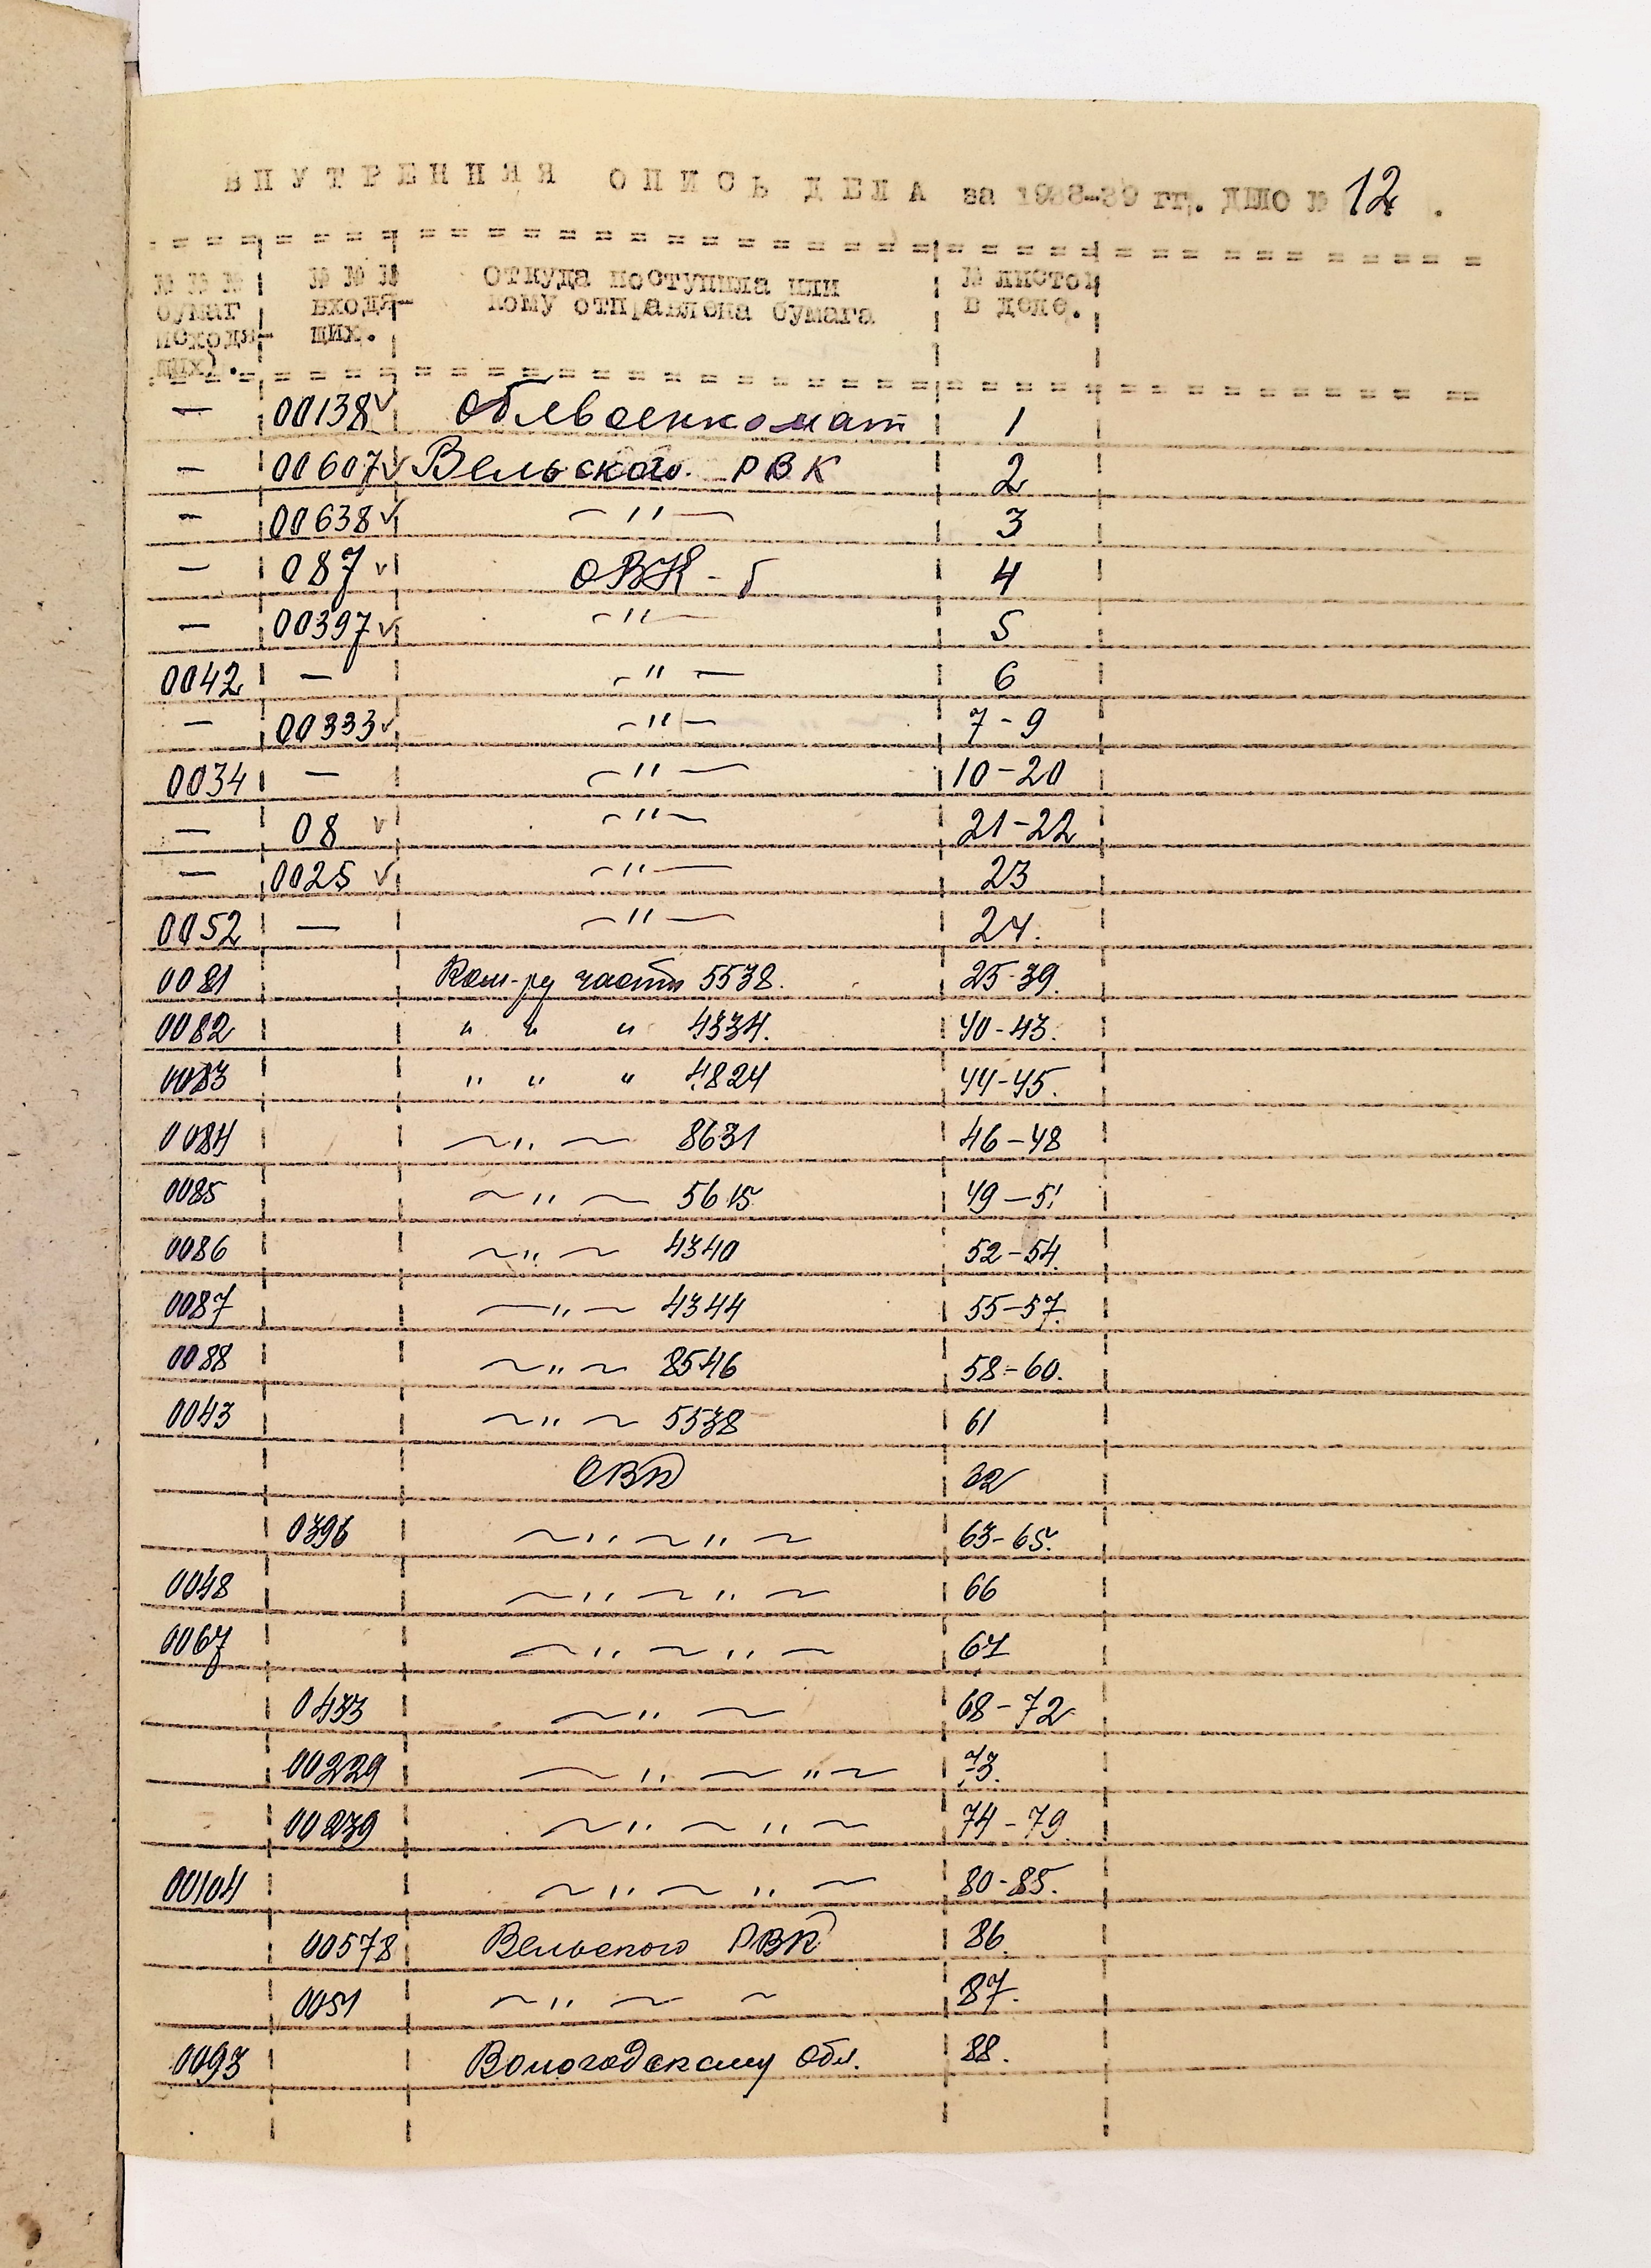 ВНУТРЕННЯЯ ОПИСЬ ДЕЛА за 1938-39 гг. ДЕЛО № 12.
№ № № бумаг исходя-щих. № № № входя-щих. Откуда поступила или кому отправлена бумага № листов в деле.
— 00138 ✓ Облвоенкомат 1
— 00607 ✓ Вельского РВК 2
— 00638 ✓ — " — 3
— 087 ✓ ОВК - 5 4
— 00397 ✓ — " — 5
0042 — — " — 6
— 00333 ✓ — " — 7-9
0034 — — " — 10-20
— 08 ✓ — " — 21-22
— 0025 ✓ — " — 23
0052 — — " — 24.
0081 Ком-ру части 5538. 25-39.
0082 " " " 4334. 40-43.
0083 " " " 4824 44-45.
0084 — " — 8631 46-48
0085 — " — 5615 49-51
0086 — " — 4340 52-54.
0087 — " — 4344 55-57.
0088 — " — 8546 58-60.
0043 — " — 5538 61
ОВК 62
0396 — " — " — 63-65.
0048 — " — " — 66
0067 — " — " — 67
0433 — " — 68-72
00229 — " — " — 73.
00239 — " — " — 74-79
00104 — " — " — 80-85.
00578 Вельского РВК 86.
0051 — " — — 87.
0093 Вологодскому Обл. 88.